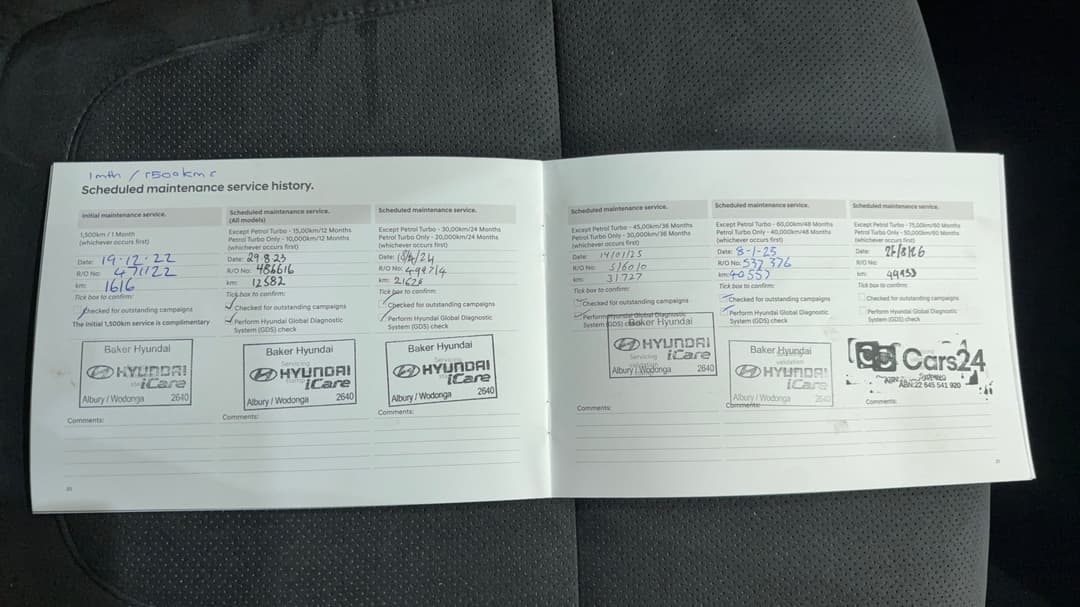 1mth / 1500kms
Scheduled maintenance service history.
Initial maintenance service.
1,500km / 1 Month
(whichever occurs first)
Date: 19.12.22
R/O No: 471122
km: 1616
Tick box to confirm:
Checked for outstanding campaigns
The initial 1,500km service is complimentary
Baker Hyundai
HYUNDAI
iCare
Albury / Wodonga 2640
Comments:
20
Scheduled maintenance service.
(All models)
Except Petrol Turbo - 15,000km/12 Months
Petrol Turbo Only - 10,000km/12 Months
(whichever occurs first)
Date: 29.8.23
R/O No: 486616
km: 12582
Tick box to confirm:
Checked for outstanding campaigns
Perform Hyundai Global Diagnostic
System (GDS) check
Baker Hyundai
Servicing
HYUNDAI
iCare
Albury / Wodonga 2640
Comments:
Scheduled maintenance service.
Except Petrol Turbo - 30,000km/24 Months
Petrol Turbo Only - 20,000km/24 Months
(whichever occurs first)
Date: /4/24
R/O No: 499714
km:
Tick box to confirm:
Checked for outstanding campaigns
Perform Hyundai Global Diagnostic
System (GDS) check
Baker Hyundai
Servicing
HYUNDAI
iCare
Albury / Wodonga 2640
Comments:
Scheduled maintenance service.
Except Petrol Turbo - 45,000km/36 Months
Petrol Turbo Only - 30,000km/36 Months
(whichever occurs first)
Date: 14/01/25
R/O No: 516010
km: 31727
Tick box to confirm:
Checked for outstanding campaigns
Perform Hyundai Global Diagnostic
System (GDS) check
Baker Hyundai
HYUNDAI
Servicing
iCare
validation
Albury / Wodonga 2640
Comments:
Scheduled maintenance service.
Except Petrol Turbo - 60,000km/48 Months
Petrol Turbo Only - 40,000km/48 Months
(whichever occurs first)
Date: 8-1-25
R/O No: 537376
km: 40557
Tick box to confirm:
Checked for outstanding campaigns
Perform Hyundai Global Diagnostic
System (GDS) check
Baker Hyundai
validation
HYUNDAI
iCare
Albury / Wodonga 2640
Comments:
Scheduled maintenance service.
Except Petrol Turbo - 75,000km/60 Months
Petrol Turbo Only - 50,000km/60 Months
(whichever occurs first)
Date:
R/O No:
km: 49953
Tick box to confirm:
Checked for outstanding campaigns
Perform Hyundai Global Diagnostic
System (GDS) check
Cars24
ABN:22 645 541 920
Comments:
21